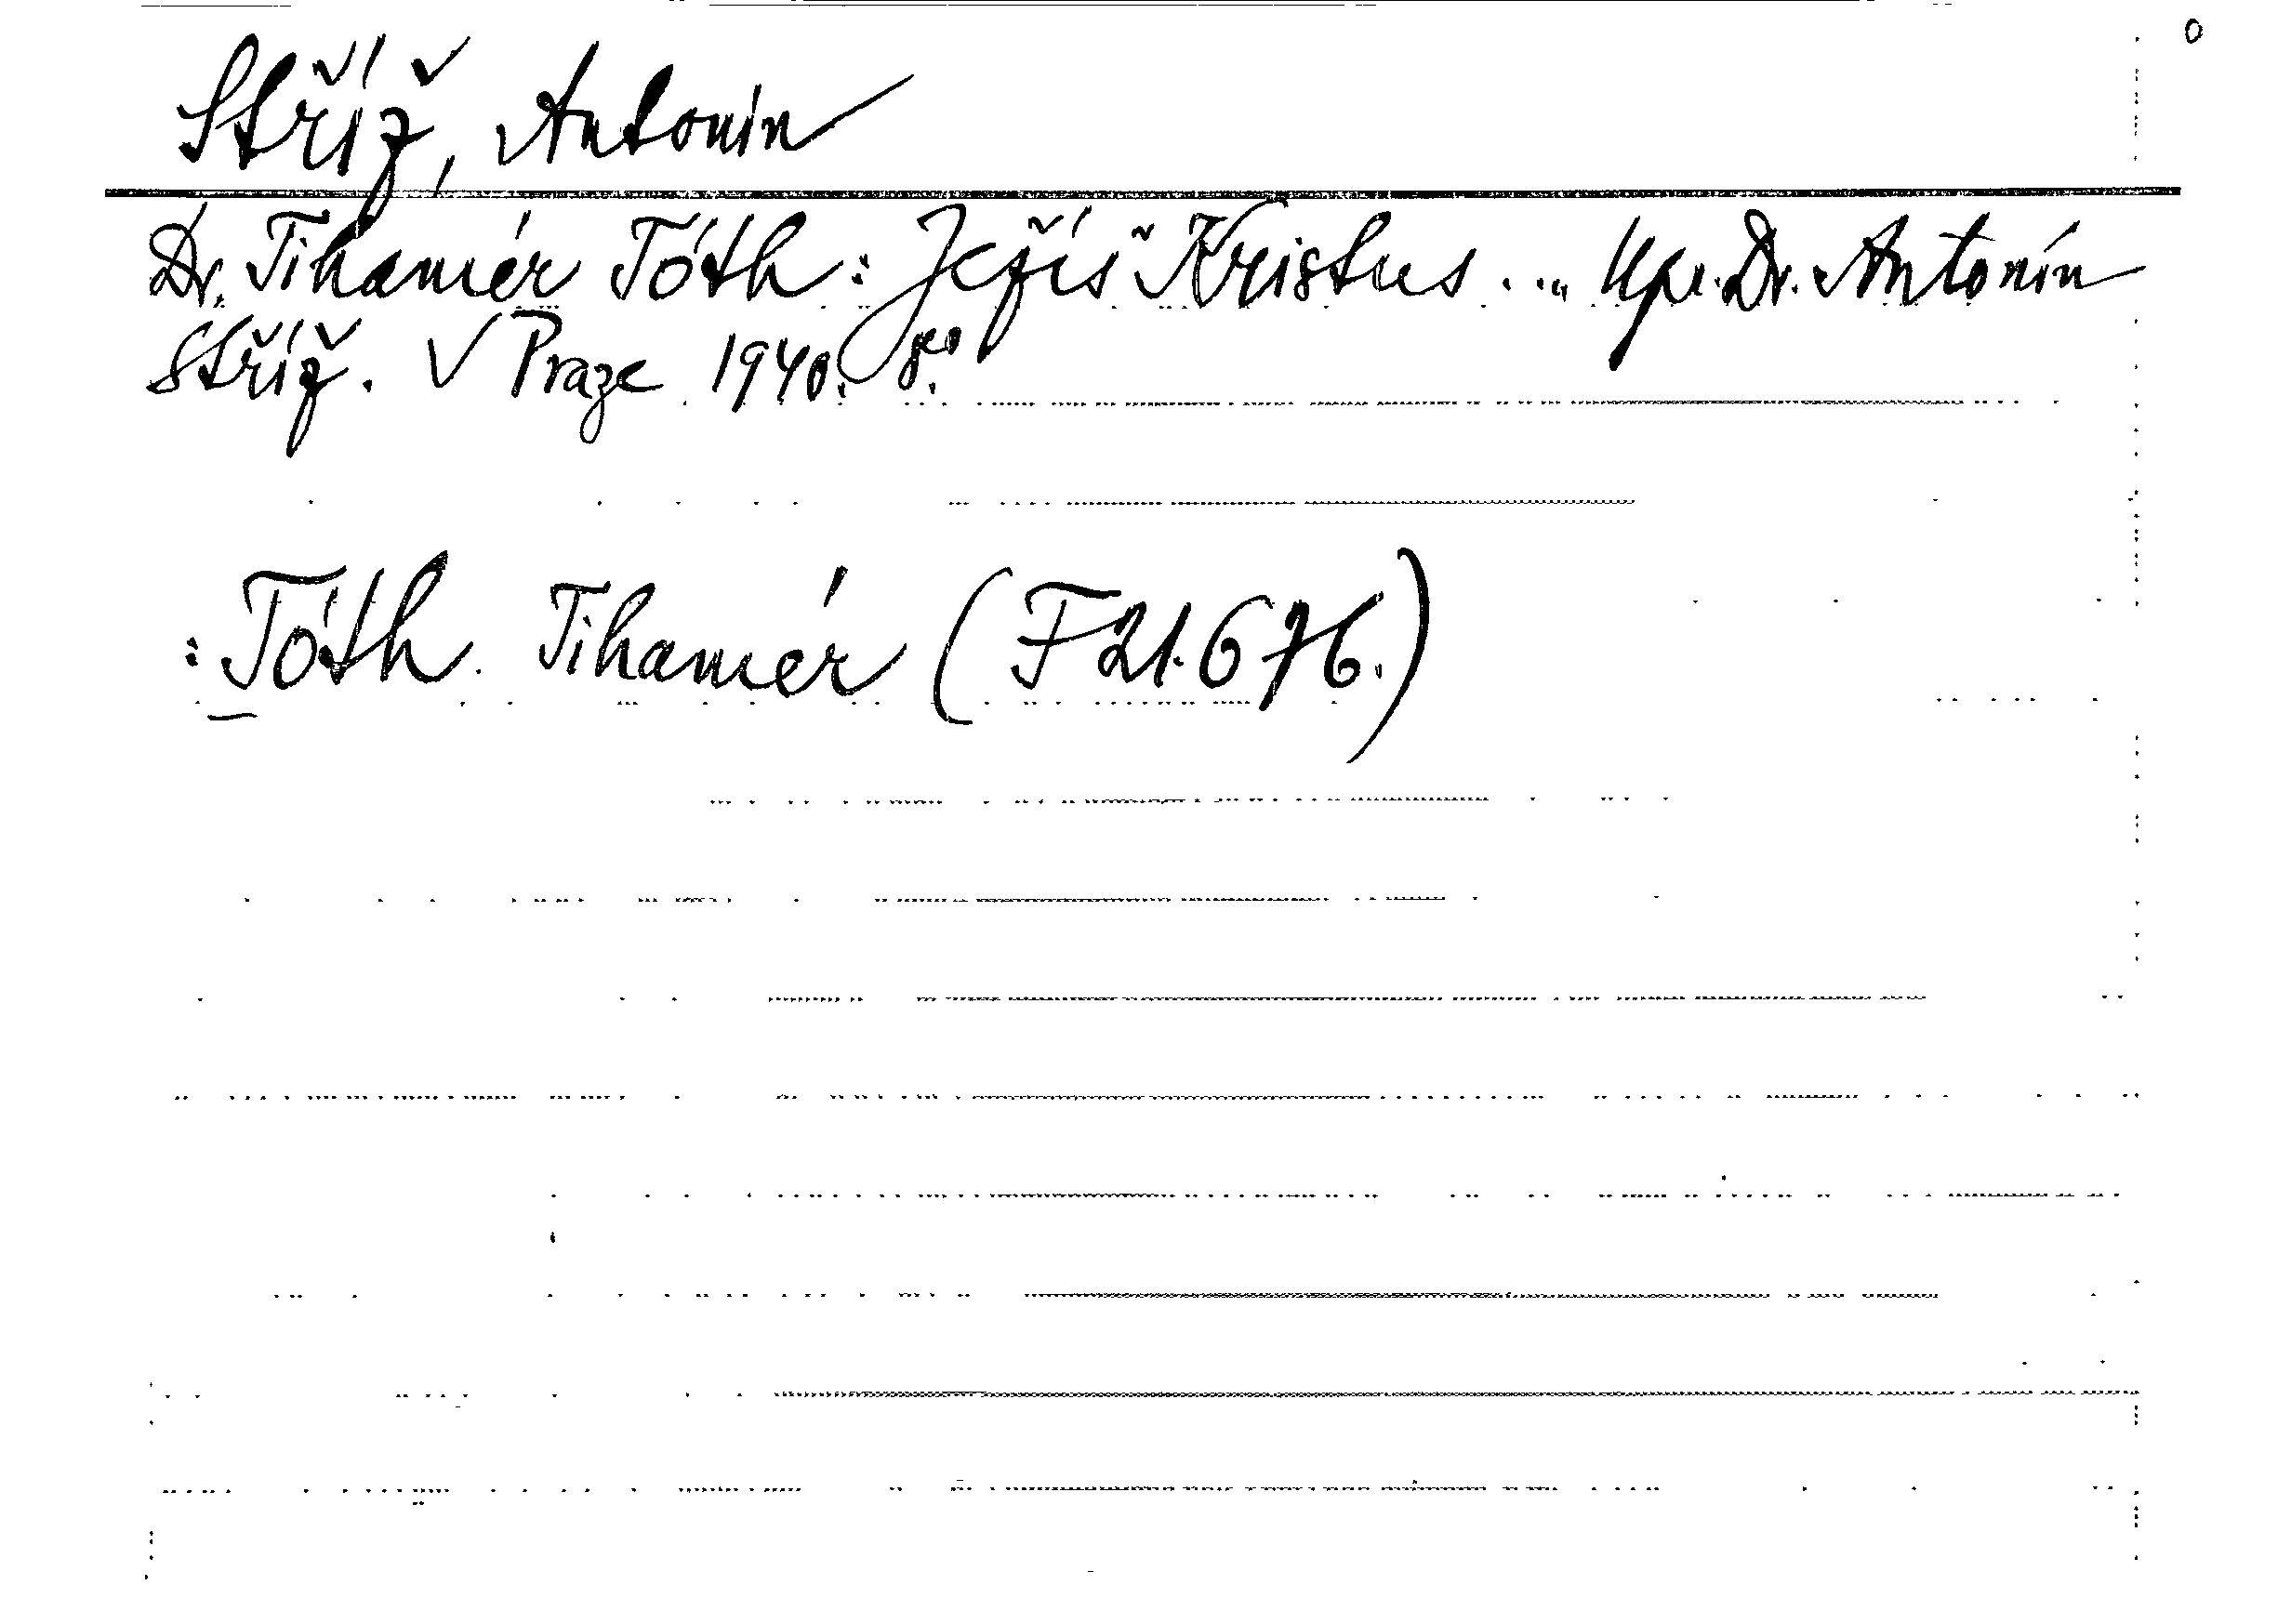 o
Stříž, Antonín
Dr. Tihamér Tóth: Ježíš Kristus ... Upr. Dr. Antonín
Stříž. V Praze 1940. 8º.
: Tóth Tihamér (F 21.676.)